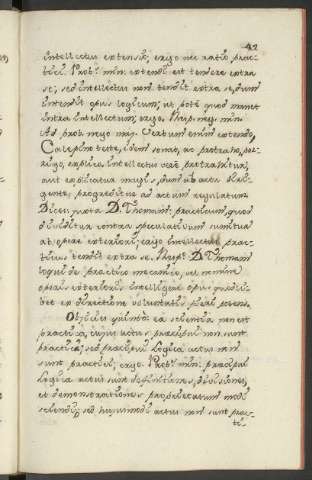 42
intellectus extensivè, ergo nec ratio prac-
tici. Prob. min. extendi est tendere extra
se; sed intellectus non tendit extra se, dum
intendit opus logicum; ut potè quod manet
intra intellectum; ergo. Resp. neg. min.
Ad prob. nego maj. Verbum enim extendo,
Calepino teste, idem sonat, ac protraho, por-
rigo, explico. Intellectus verò protrahitur,
aut explicatur magis, dum ab actu
gente, progreditur ad actum regulatum.
Dices, juxta D. Thomam: practicum, quod
dividitur contra speculativum sumitur
ab opere exteriori; ergo intellectus prac-
ticus tendit extra se. Resp. D. Thomam
loqui de practico mecanico, vel nomine
operis exterioris intelligere opus quodli-
bet ex directione voluntatis
Objicies quintò: ea scientia non est
practica, cujus actus praecipui non sunt
practici; sed praecipui Logicae actus non
sunt practici; ergo. Prob. min. praecipui
Logicae actus sunt definitiones, divisiones,
et demonstrationes proprietatum modi
sciendi; sed hujusmodi actus non sunt prac-
ti-